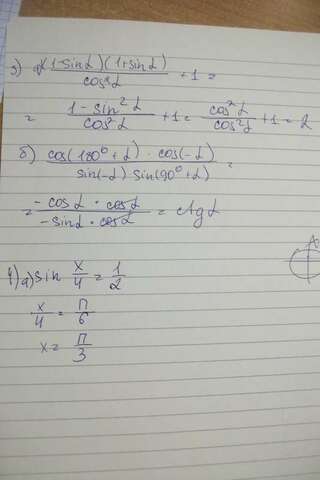 3) a) (1-sinα)(1+sinα)/cos²α + 1 =
= 1-sin²α/cos²α + 1 = cos²α/cos²α + 1 = 2
б) cos(180°+α) · cos(-α)/sin(-α) sin(90°+α) =
= -cosα · cosα/-sinα · cosα = ctgα
4) a) sin x/4 = 1/2
x/4 = π/6
x = π/3
A